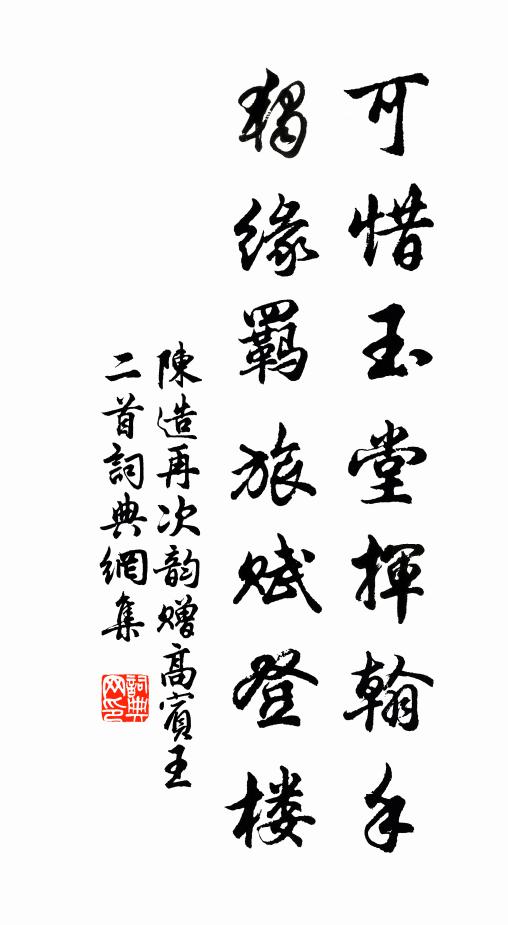 可惜玉堂揮翰手
獨緣羈旅賦登楼
陳造再次韵赠高賓王
二首詞典網集
詞典
网印